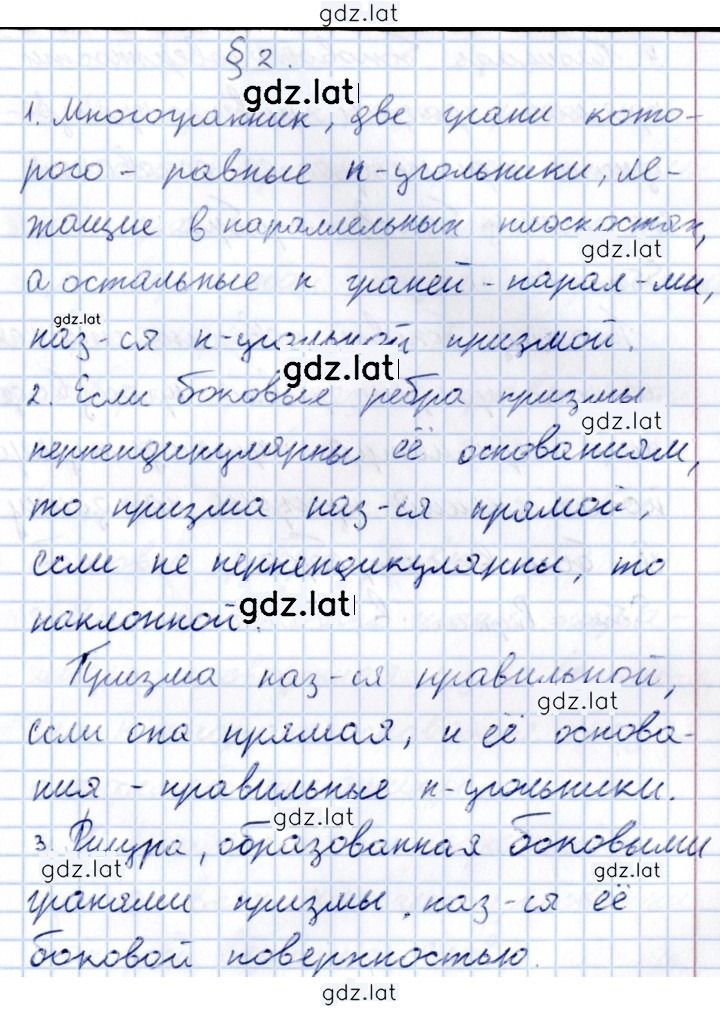 gdz.lat
§ 2.
gdz.lat
1. Многогранник, две грани кото-
рого - равные n-угольники, ле-
жащие в параллельных плоскостях,
gdz.lat
а остальные n граней - парал-ми,
gdz.lat
наз-ся n-угольной призмой.
gdz.lat
2. Если боковые ребра призмы
gdz.lat
перпендикулярны её основаниям,
то призма наз-ся прямой,
если не перпендикулярны, то
наклонной.
gdz.lat
Призма наз-ся правильной,
gdz.lat
если она прямая, и её основа-
ния - правильные n-угольники.
gdz.lat
3. Фигура, образованная боковыми
gdz.lat
gdz.lat
гранями призмы, наз-ся её
боковой поверхностью.
gdz.lat